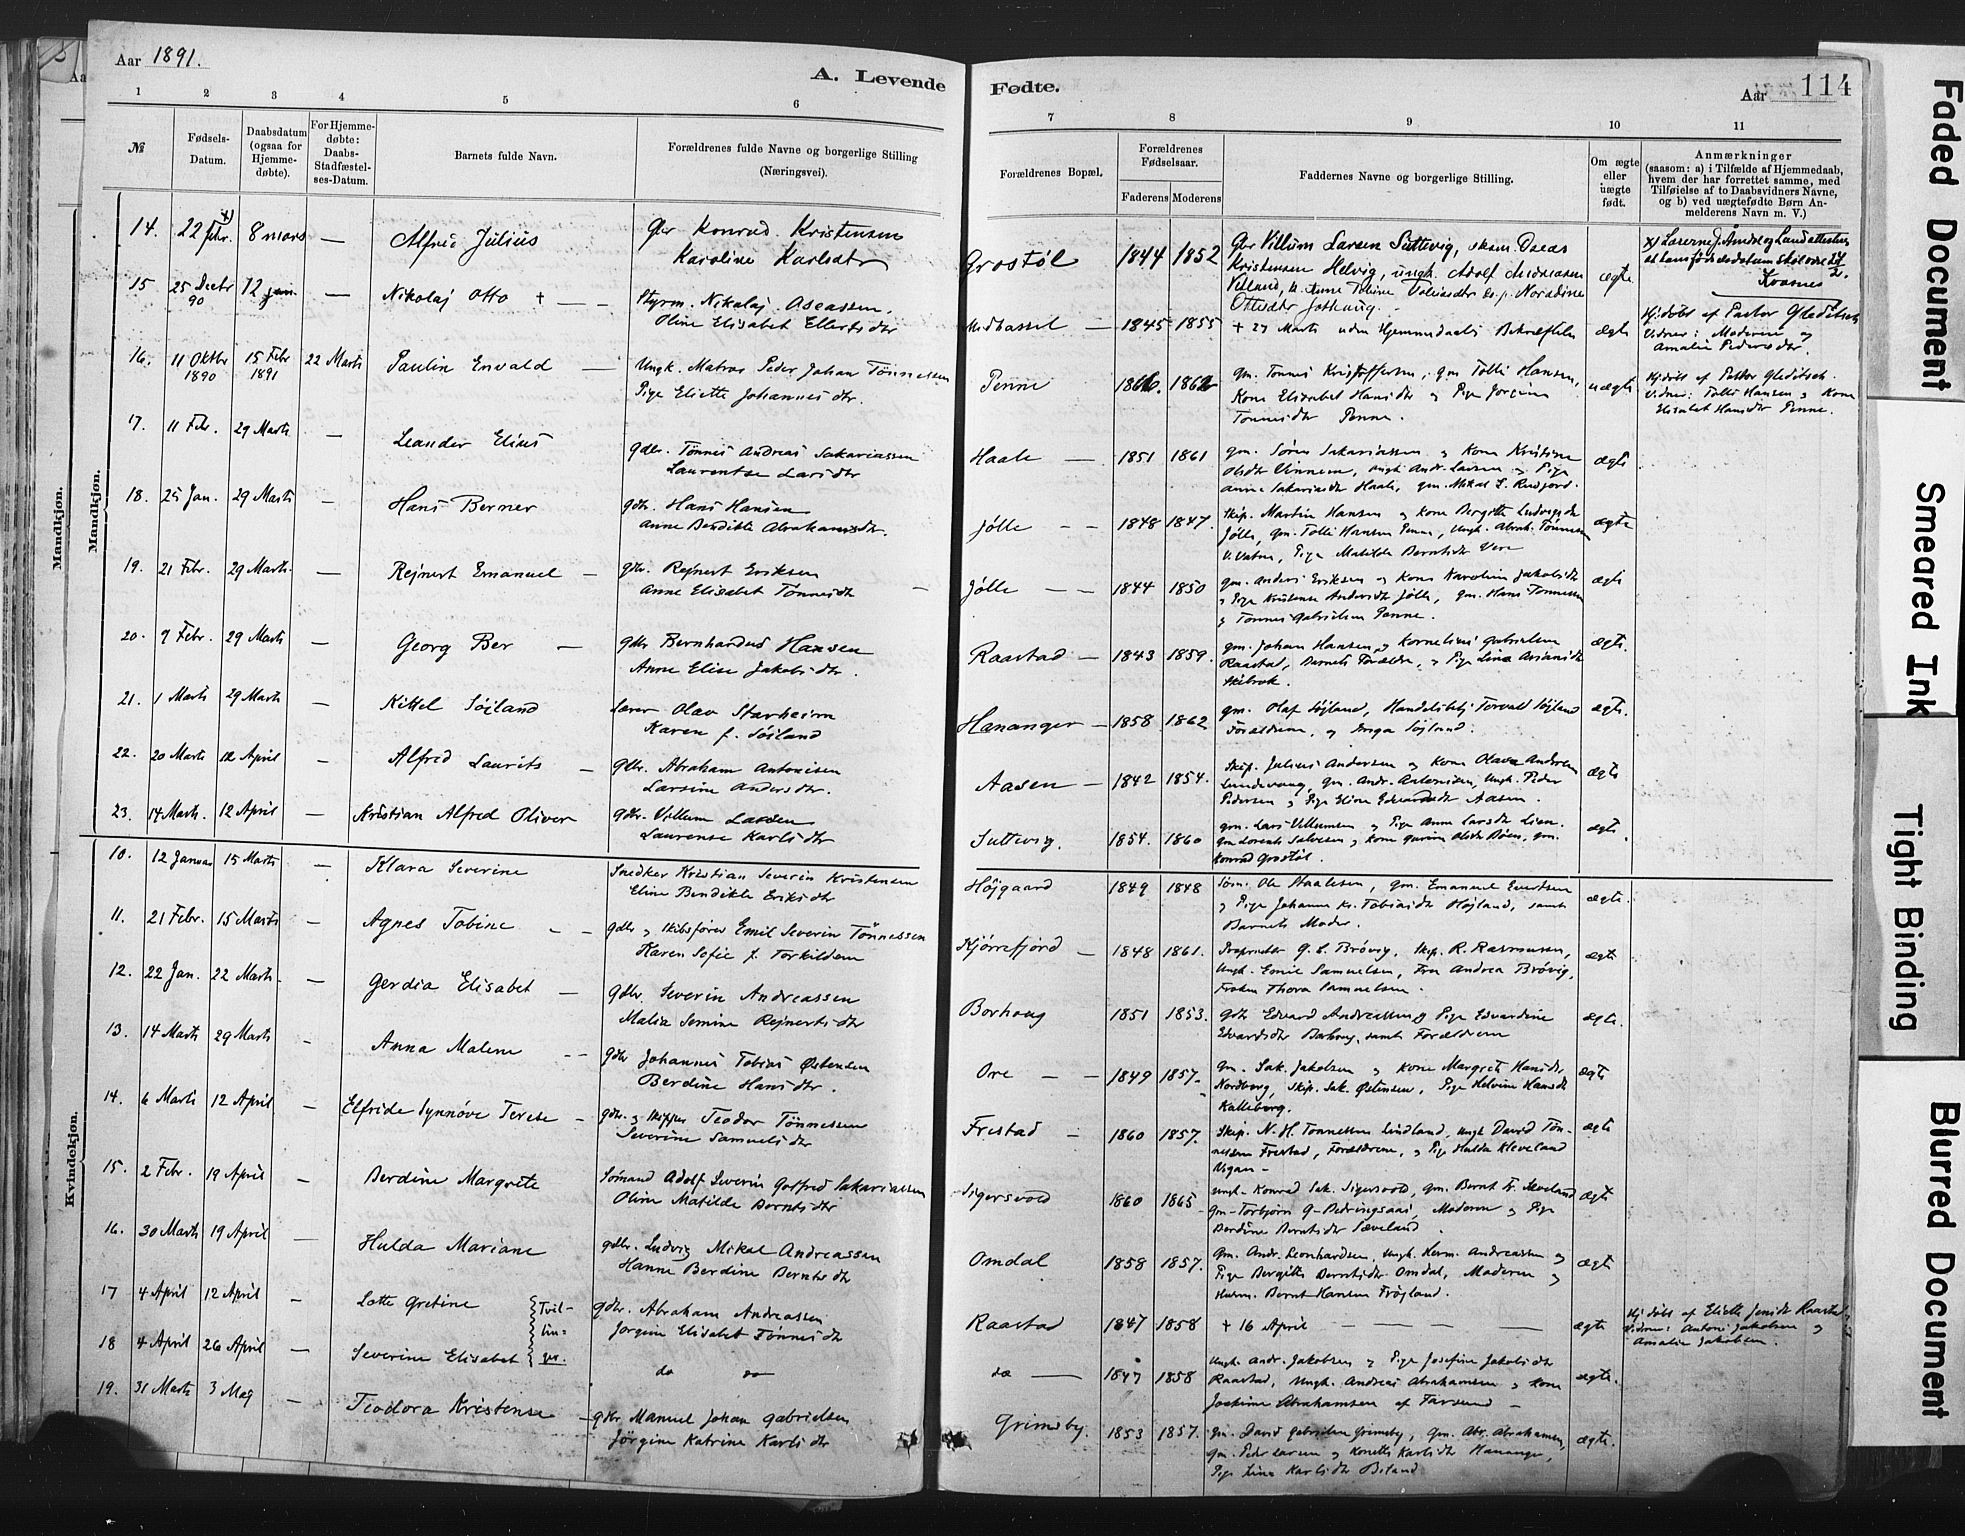 Aar 1891.
A. Levende Fødte.
Aar 114
1 2 3 4 5 6 7 8 9 10 11
№
Fødsels-Datum.
Daabsdatum (ogsaa for Hjemmedøbte).
For Hjemmedøbte: Daabs-Stadfæstelses-Datum.
Barnets fulde Navn.
Forældrenes fulde Navne og borgerlige Stilling (Næringsvei).
Forældrenes Bopæl.
Forældrenes Fødselsaar.
Faderens Moderens
Faddernes Navne og borgerlige Stilling.
Om ægte eller uægte født.
Anmærkninger
(saasom: a) i Tilfælde af Hjemmedaab, hvem der har forrettet samme, med Tilføielse af to Daabsvidners Navne, og b) ved uægtefødte Børn Anmelderens Navn m. V.)
Mandkjøn.
Mandkjøn.
14. 22 Febr. 8 mars — Alfred Julius
Gbr Konrad Kristensen
Karoline Karlsdtr
Grostøl 1844 1852
Gbr Villum Larsen Suttevig, Oseas
Kristensen Helvig, ungk. Adolf Andreasen
ægte
15 25 Decbr 90 12 jan — Nikolaj Otto +
Styrm. Nikolaj Oseassen.
Oline Elisabet Ellertsdtr
Medhassel — 1845 1855
+ 27 Marts uden Hjemmedaabs Bekræftelse
ægte
Hj.døbt af Pastor Gleditsch
Vidner: Moderene og
Amalie Pedersdtr.
16. 11 Oktbr 1890 15 Febr 1891 22 Marts Paulin Envald —
Ungk. Matros Peder Johan Tønnessen
Pige Eliette Johannesdtr.
Penne
gm. Tønnes Kristoffersen, gm Tolli Hansen,
Kone Elisabet Hansdtr og Pige Jorgine
Tønnesdtr Penne.
uægte
Hj.døbt af Pastor Gleditsch.
Vidner: Tolli Hansen og Kone
Elisabet Hansdtr Penne.
17. 11 Febr. 29 Marts — Leander Elias
gdbr. Tønnes Andreas Sakariassen
Laurentse Larsdtr
Haale — 1851 1861
gm. Søren Sakariassen og Kone Kristine
Olsdtr Vinnem, ungk. Andr. Larsen og Pige
Anne Sakariasdtr Haale, gm. Mikal L. Rudjord.
ægte
18. 25 Jan. 29 Marts — Hans Berner
gdbr. Hans Hansen
Anne Bendikte Abrahamsdtr.
Jølle — — 1848 1847.
Skip. Martin Hansen og Kone Bergitte Ludvigsdtr
Jølle, gm. Tolli Hansen Penne, Ungk. Abrah. Tønnessen
V. Vatne, Pige Matilde Berntsdtr Vere
ægte
19. 21 Febr. 29 Marts. — Rejnert Emanuel —
gdbr. Rejnert Eriksen
Anne Elisabet Tønnesdtr
Jølle — — 1844 1850
gm. Anders Eriksen og Kone Karoline Jakobsdtr
og Pige Kristense Andersdtr Jølle, gm. Hans Tønnessen
og Tønnes Gabrielsen Penne.
ægte
20. 7 Febr. 29 Marts — Georg Ber —
gdbr Bernhardus Hansen
Anne Elise Jakobsdtr.
Raastad — 1843 1859.
gm. Johan Hansen, Kornelius Gabrielsen
Raastad, Barnets Forældre, og Pige Lina Asriansdtr
Skibrok.
ægte.
21. 1 Marts 29 Marts — Kittel Søjland
Lærer Olav Starheim
Karen f. Søjland
Hananger — 1858 1862
gm. Olaf Søjland, Handelsbetj Torvald Søjland
Forældrene, og Søjland.
ægte.
22. 20 Marts 12 April — Alfred Laurits —
gdbr. Abraham Antonisen
Larsine Andersdtr.
Aasen — 1842 1854.
Skip. Julius Andersen og Kone Olava Andrea
Lundevaag, gm. Andr. Antonisen, Ungk. Peder
Pedersen og Pige Eline Edvardsdtr Aasen.
ægte
23. 14 Marts. 12 April — Kristian Alfred Oliver
gdbr. Villum Larsen
Laurense Karlsdtr
Suttevig. 1854. 1860
gm. Lars Villumsen og Pige Anne Larsdtr Lien.
gm Lorents Salvesen og Kone Olsdtr Bøen, gm.
Konrad Grostøl.
ægte.
Kvindekjøn.
10. 12 Januar 15 Marts — Klara Severine
Snedker Kristian Severin Kristensen
Eline Bendikte Eriksdtr
Højgaard 1849 1848
Søm. Ole Staalesen, gm. Emanuel Evertsen
og Pige Johanne Kr. Tobiasdtr Højland, samt
Barnets Moder.
ægte.
11. 21 Febr. 15 Marts — Agnes Tobine — —
gdbr og Skibsfører Emil Severin Tønnessen
Karen Sofie f. Torkildsen
Kjørrefjord — 1848 1861.
Proprietær G. C. Brøvig, Skip. R. Rasmussen,
Ungk. Emil Samuelsen, Fru Andrea Brøvig,
Frøken Thora Samuelsen.
ægte
12. 22 Jan. 22 Marts — Gerdia Elisabet —
gdbr. Severin Andreassen
Malia Semine Rejnertsdtr
Borhaug 1851 1853.
gdb Edvard Andreassen og Pige Edvardine
Edvardsdtr Borhaug, samt Forældrene
ægte.
13. 14 Marts 29 Marts — Anna Malene — —
gdbr Johannes Tobias Østensen
Berdine Hansdtr.
Ore — — 1849 1857.
gm. Sak. Jakobsen og Kone Margrete Hansdtr
Nordberg, Skip. Sak. Østensen, Pige Helvine Hansdtr
Kalleberg.
ægte
14. 6 Marts 12 April — Elfride Synnøve Terese —
gdbr. og Skipper Teodor Tønnessen
Severine Samuelsdtr
Frestad — 1860 1857.
Skip. N. H. Tønnessen Lindland, ungk David Tønnessen
Frestad, Forældrene, og Pige Hulda Kleveland
Vigan —
ægte
15. 2 Febr. 19 April — Berdine Margrete
Sømand Adolf Severin Gotfred Sakariassen
Oline Matilde Berntsdtr
Sigersvold 1860 1865
ungk. Konrad Sak. Sigersvold, gm. Bernt
gm. Torbjørn G. Bedringsaas, Moderen og Pige
Berdine Berntsdtr Sæveland.
ægte
16. 30 Marts 19 April — Hulda Mariane
gdbr. Ludvig Mikal Andreassen
Hanne Berdine Berntsdtr
Omdal 1858 1857.
gm. Andr. Leonhardsen, ungk. Herm. Andreassen og
Pige Bergitte Berntsdtr Omdal, Moderen og
Husm. Bernt Hansen Frøjland.
ægte
17 4 April 12 April — Lotte Gretine
Tvillinger.
gdbr. Abraham Andreassen
Jorgine Elisabet Tønnesdtr
Raastad 1847 1858
+ 16 April — — —
ægte
Hj.døbt af Eliette Jensdtr Raastad
Vidner: Antoni Jakobsen og
Amalie Jakobsen.
18 4 April 26 April — Severine Elisabet
do do
do — 1847 1858
Ungk. Andr. Jakobsen og Pige Josefine Jakobsdtr
Raastad, Ungk. Andreas Abrahamsen og Kone
Joakime Abrahamsen af Farsund —
ægte.
19. 31 Marts 3 Maj — Teodora Kristense —
gdbr Manuel Johan Gabrielsen
Jörgine Katrine Karlsdtr
Grimsby. 1853 1857.
gm. David Gabrielsen Grimsby, gm. Abr. Abrahamsen,
gm. Peder Larsen og Konette Karlsdtr Hananger,
Pige Lina Karlsdtr Beland
ægte.
Faded Document
Smeared Ink
Tight Binding
Blurred Document